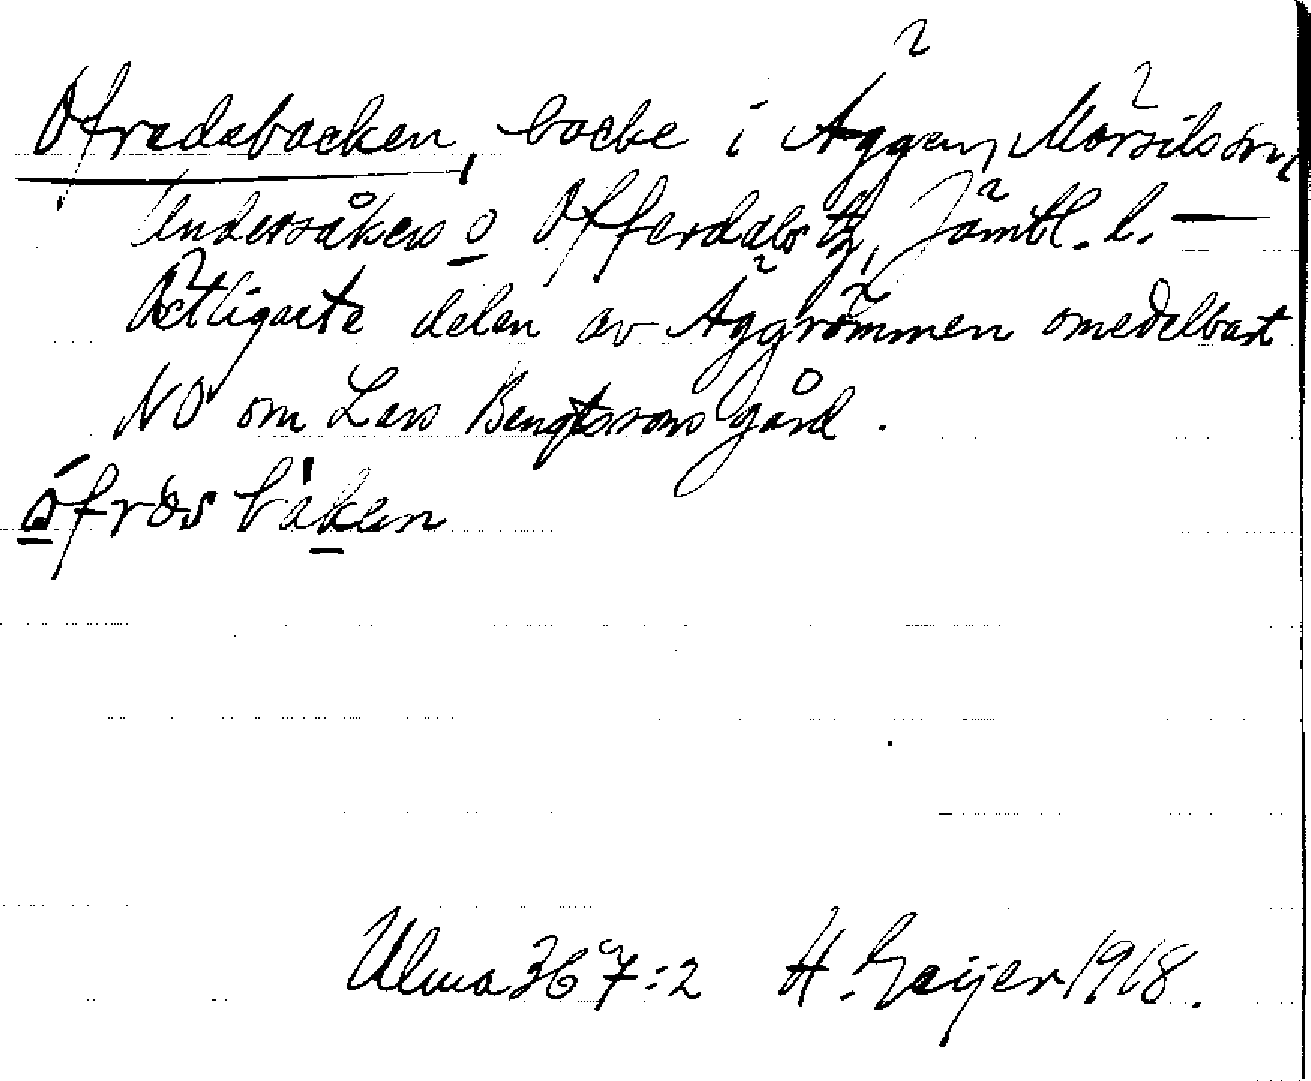 Ofredsbacken, backe i Äggen, Mörsils sn,
Undersåkers o Offerdals tg, Jämtl. l. —
Östligaste delen av Äggrömmen omedelbart
NO om Lars Bengtssons gård.
Ulma 367:2 H. Geijer 1918.